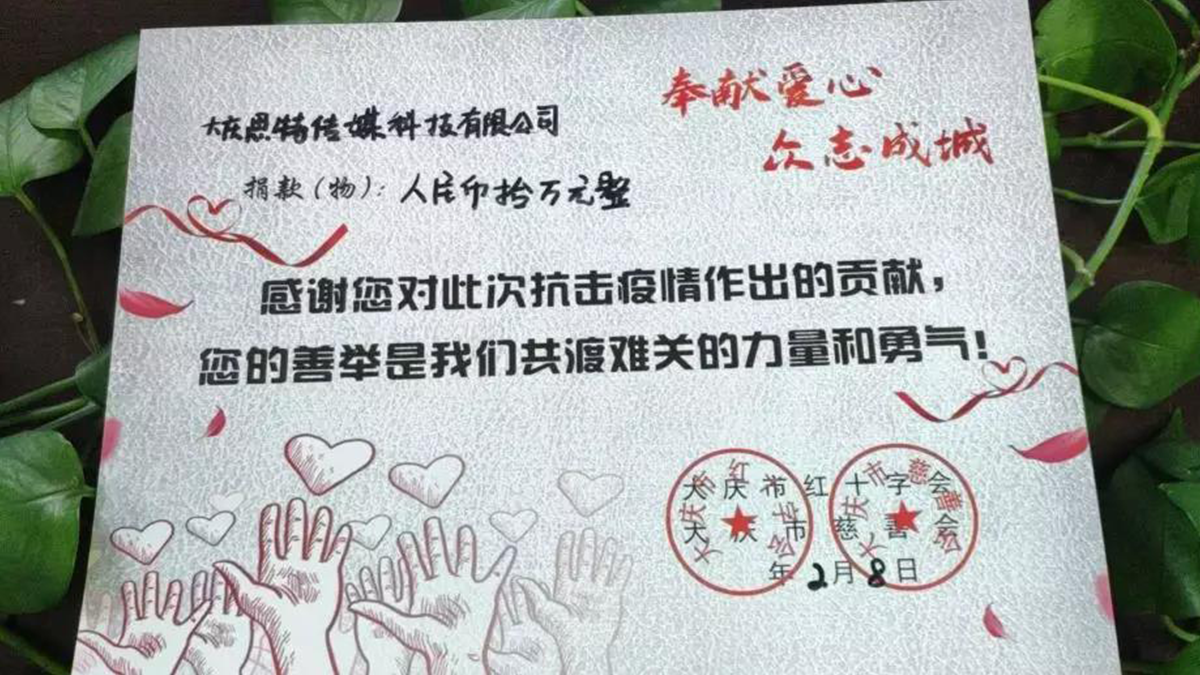 奉献爱心
众志成城
大庆思特传媒科技有限公司
捐款(物):人民币拾万元整
感谢您对此次抗击疫情作出的贡献,
您的善举是我们共渡难关的力量和勇气!
大庆市红十字会
大庆市慈善会
年2月8日
大庆市红十字会
大庆市慈善会